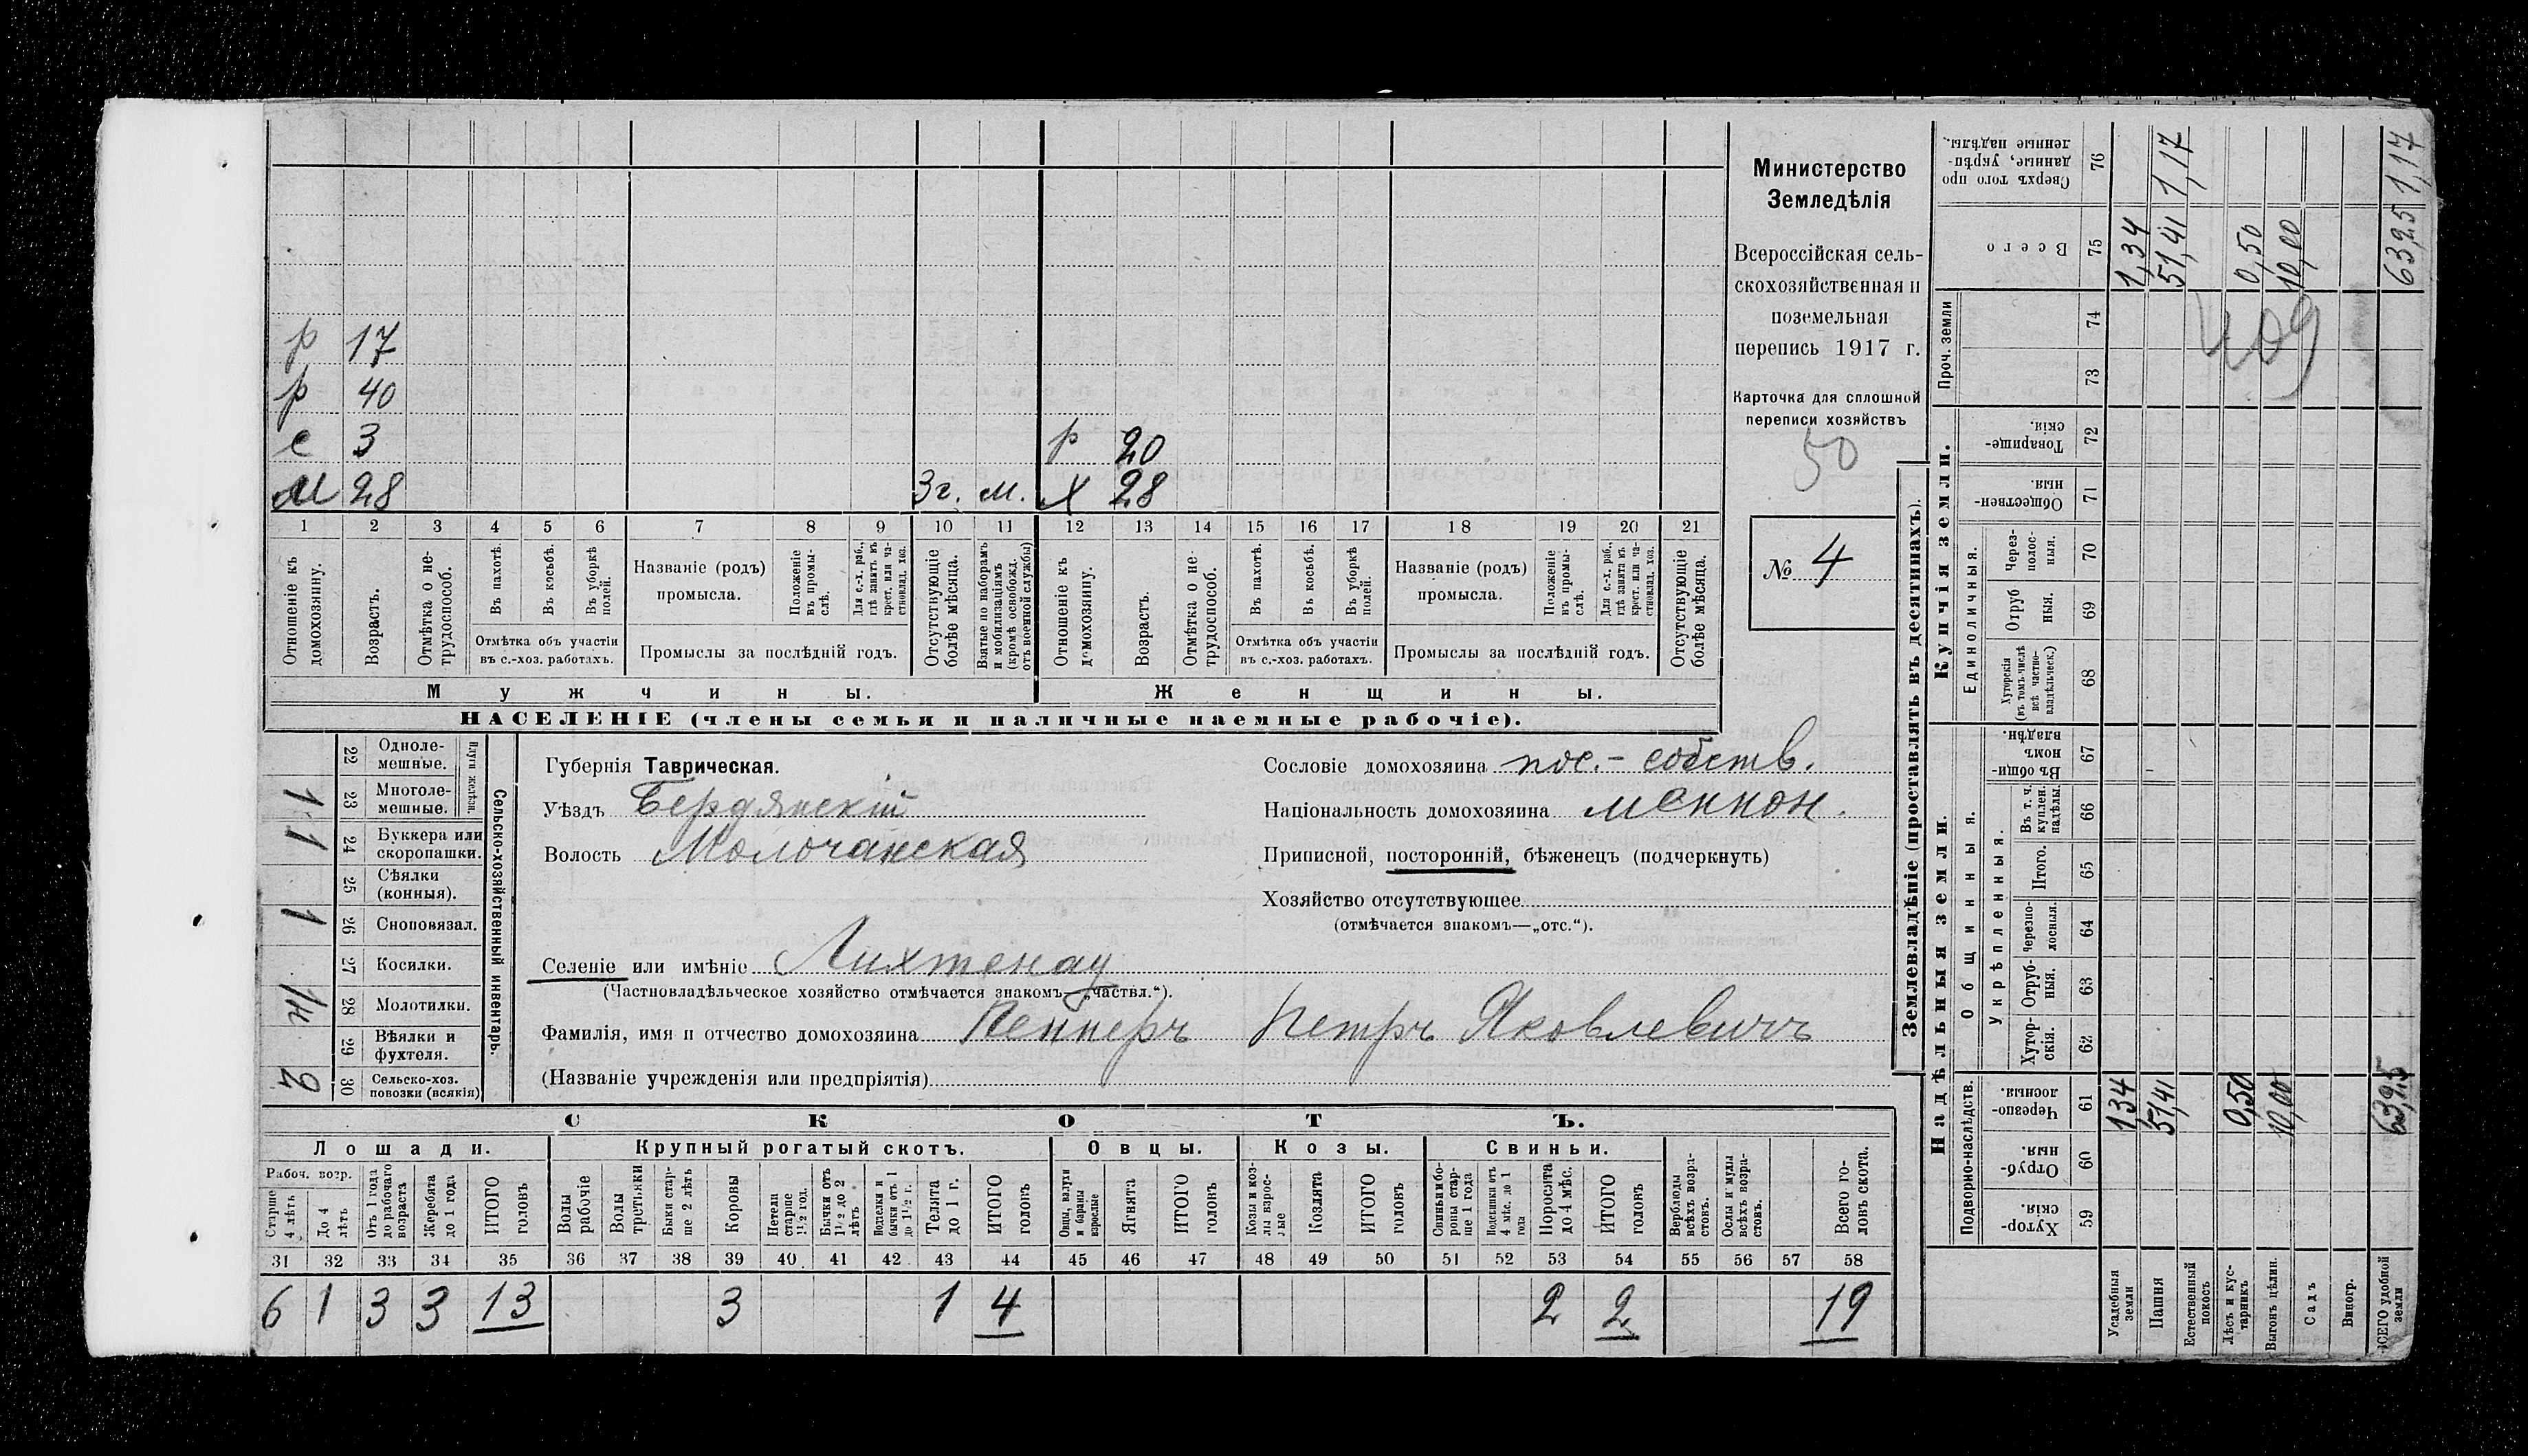 Министерство
Земледѣлія
Всероссійская сель-
скохозяйственная и
поземельная
перепись 1917 г.
Карточка для сплошной
переписи хозяйствъ
50
№ 4
р 17
р 40
с 3 р 20
М 28 3г. м. Х 28
1 2 3 4 5 6 7 8 9 10 11 12 13 14 15 16 17 18 19 20 21
Отношеніе къ домохозяину.
Возрастъ.
Отмѣтка о не-трудоспособ.
Въ пахотѣ.
Въ косьбѣ.
Въ уборкѣ полей.
Отмѣтка объ участіи
въ с.-хоз. работахъ.
Названіе (родъ)
промысла.
Положеніе въ промы-слѣ.
Для с.-х. раб., гдѣ занятъ въ крест. или ча-стновлад. хоз.
Промыслы за послѣдній годъ.
Отсутствующіе болѣе мѣсяца.
Взятые по наборамъ и мобилизаціямъ (кромѣ освобожд. отъ военной службы)
Отношеніе къ домохозяину.
Возрастъ.
Отмѣтка о не-трудоспособ.
Въ пахотѣ.
Въ косьбѣ.
Въ уборкѣ полей.
Отмѣтка объ участіи
въ с.-хоз. работахъ.
Названіе (родъ)
промысла.
Положеніе въ промы-слѣ.
Для с.-х. раб., гдѣ занята въ крест. или ча-стновлад. хоз.
Промыслы за послѣдній годъ.
Отсутствующіе болѣе мѣсяца.
Мужчины. Женщины.
НАСЕЛЕНІЕ (члены семьи и наличные наемные рабочіе).
Сельско-хозяйственный инвентарь.
Плуги желѣзн.
22 Одноле-мешные.
1 23 Многоле-мешные.
1 24 Буккера или скоропашки.
25 Сѣялки (конныя).
1 26 Сноповязал.
27 Косилки.
28 Молотилки.
29 Вѣялки и фухтеля.
2 30 Сельско-хоз. повозки (всякія)
Губернія Таврическая.
Уѣздъ Бердянскій
Волость Молочанская
Селеніе или имѣніе Лихтенау
(Частновладѣльческое хозяйство отмѣчается знакомъ—„частвл.“).
Фамилія, имя и отчество домохозяина Пеннеръ Петръ Яковлевичъ
(Названіе учрежденія или предпріятія)
Сословіе домохозяина пос.- собств.
Національность домохозяина меннон.
Приписной, посторонній, бѣженецъ (подчеркнуть)
Хозяйство отсутствующее
(отмѣчается знакомъ—„отс.“).
СКОТЪ.
Лошади. Крупный рогатый скотъ. Овцы. Козы. Свиньи.
Рабоч. возр.
Старше 4 лѣтъ
До 4 лѣтъ
Отъ 1 года до рабочаго возраста
Жеребята до 1 года
ИТОГО головъ
Волы рабочіе
Волы третьяки
Быки стар-ше 2 лѣтъ
Коровы
Нетели старше 1 1/2 год.
Бычки отъ 1 1/2 до 2 лѣтъ
Подтелки и бычки отъ 1 до 1 1/2 г.
Телята до 1 г.
ИТОГО головъ
Овцы, валухи и бараны взрослые
Ягнята
ИТОГО головъ
Козы и коз-лы взрос-лые
Козлята
ИТОГО головъ
Свиньи и бо-ровы стар-ше 1 года
Подсвинки отъ 4 мѣс. до 1 года
Поросята до 4 мѣс.
ИТОГО головъ
Верблюды всѣхъ возра-стовъ.
Ослы и мулы всѣхъ возра-стовъ.
Всего го-ловъ скота.
31 32 33 34 35 36 37 38 39 40 41 42 43 44 45 46 47 48 49 50 51 52 53 54 55 56 57 58
6 1 3 3 13 3 1 4 2 2 19
Землевладѣніе (проставлять въ десятинахъ).
Надѣльныя земли.
Купчія земли.
Проч. земли
Подворно-наслѣдств.
Общинныя.
Укрѣпленныя.
Единоличныя.
Хутор-скія. 59
Отруб-ныя. 60
Черезпо-лосныя. 61
Хутор-скія. 62
Отруб-ныя. 63
Черезпо-лосныя. 64
Итого. 65
Въ т. ч. куплен. надѣлы. 66
Въ общи-номъ владѣн. 67
Хуторскія (въ томъ числѣ всѣ частно-владѣльческ.) 68
Отруб ныя. 69
Через-полос-ныя. 70
Обществен-ныя. 71
Товарище-скія. 72
73
74
Всего 75
Сверхъ того про данные, укрѣп-ленные надѣлы. 76
Усадебныя земли 1,34 1,34
Пашня 51,41 51,41 1,17
Естественный покосъ
Лѣсъ и кус-тарникъ 0,50 0,50
Выгонъ цѣлин. 10,00 10,00
Садъ
Виногр.
ВСЕГО удобной земли 63,25 63,25 1,17
409